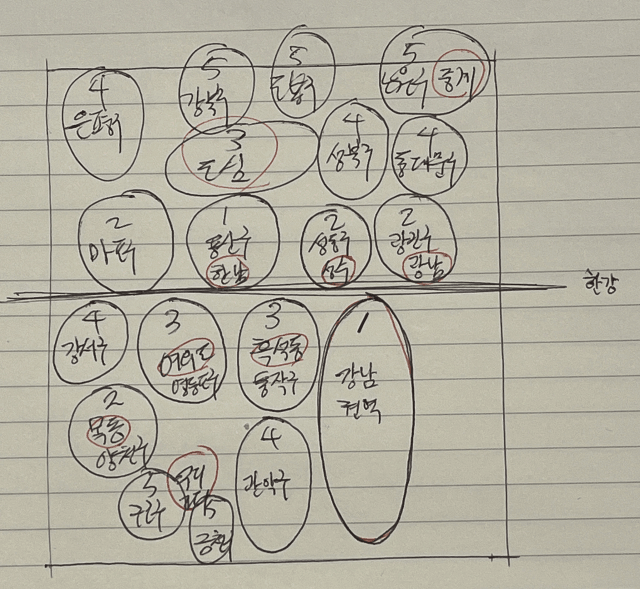 4
은평구
5
강북구
5
도봉구
5
노원구 중계
3
도심
4
성북구
4
동대문구
2
마포구
1
용산구
한남
2
성동구
성수
2
광진구
광남
한강
4
강서구
3
여의도
영등포구
3
흑석동
동작구
1
강남
권역
2
목동
양천구
5
구로구
5
금천
4
관악구